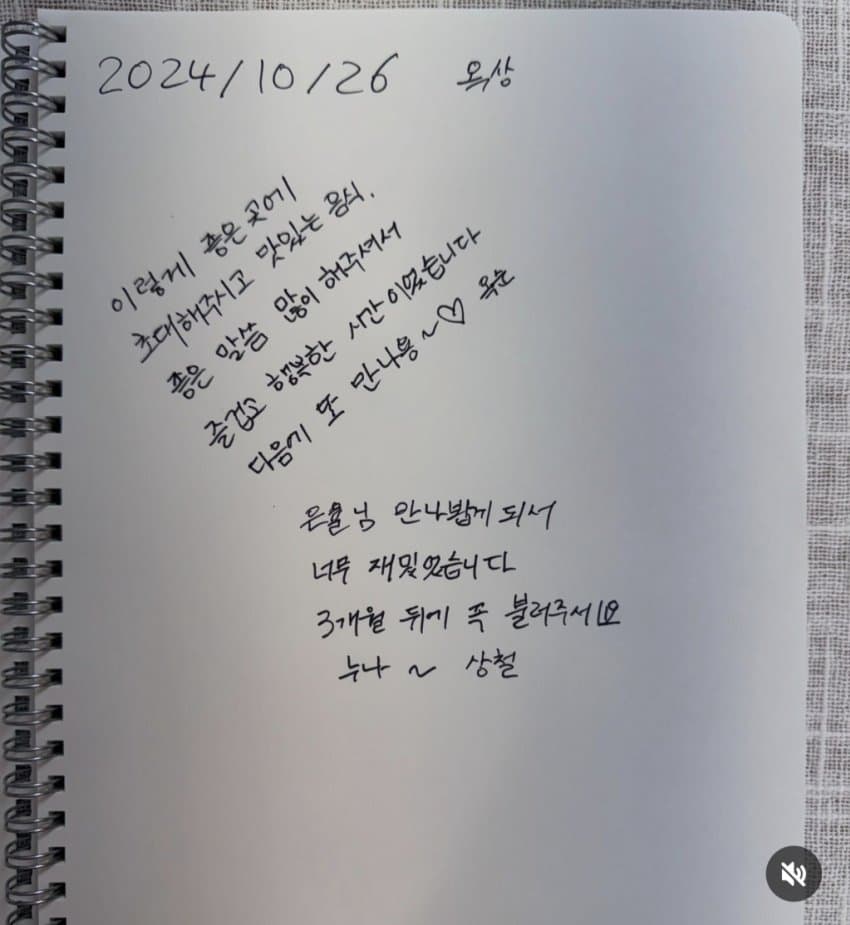 2024/10/26 옥상
이렇게 좋은 곳에
초대해주시고 맛있는 음식.
좋은 말씀 많이 해주셔서
즐겁고 행복한 시간이었습니다
다음에 또 만나용~♡ 옥순
님 만나뵙게 되서
너무 재밌었습니다
3개월 뒤에 꼭 불러주세요
누나 ~ 상철